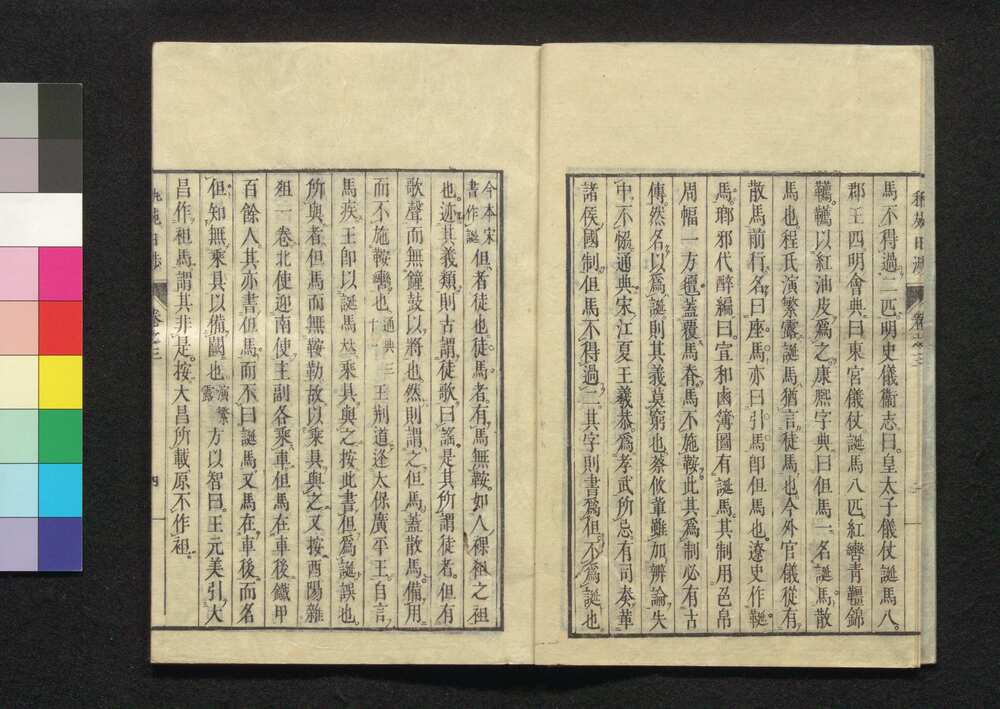 馬不得過二匹明史儀衞志曰皇太子儀仗誕馬八
郡王四明會典曰東官儀仗誕馬八匹紅轡青韁錦
韉韉以紅油皮爲之康熙字典曰但馬一名誕馬散
馬也程氏演繁露誕馬猶言徒馬也今外官儀從有
散馬前行名曰座馬亦曰引馬卽但馬也遼史作䩥
馬瑯邪代醉編曰宣和鹵簿圖有誕馬其制用色帛
周幅一方氊蓋覆馬脊馬不施鞍此其爲制必有古
傳然名以爲誕則其義莫窮也蔡攸輩雖加辨論失
中不愜通典宋江夏王義恭爲孝武所忌有司奏革
諸侯國制但馬不得過二其字則書爲但不爲誕也
卷之三
今本宋書作誕但者徒也徒馬者有馬無鞍如人裸袒之袒
也迹其義類則古謂徒歌曰謠是其所謂徒者但有
歌聲而無鐘鼓以將也然則謂之但馬蓋散馬備用
而不施鞍轡也通典三十一王荆道逢太保廣平王自言
馬疾王卽以誕馬並乘具與之按此書但爲誕誤也
所與者但馬而無鞍勒故以乘具與之又按酉陽雜
俎一卷北使迎南使主副各乘車但馬在車後鐵甲
百餘人其亦書但馬而不曰誕馬又馬在車後而名
但知無乘具以備闕也演繁露方以智曰王元美引大
昌作袒馬謂其非是按大昌所載原不作袒
卷之三
四